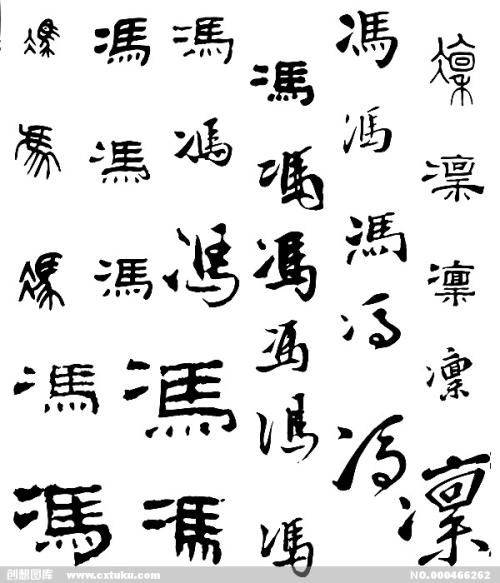 馮馮馮馮馮
馮馮馮馮馮
馮馮馮
馮馮馮馮馮馮
馮馮馮馮馮
凜凜凜凜凜
创想图库 www.cxtuku.com
NO.000466262